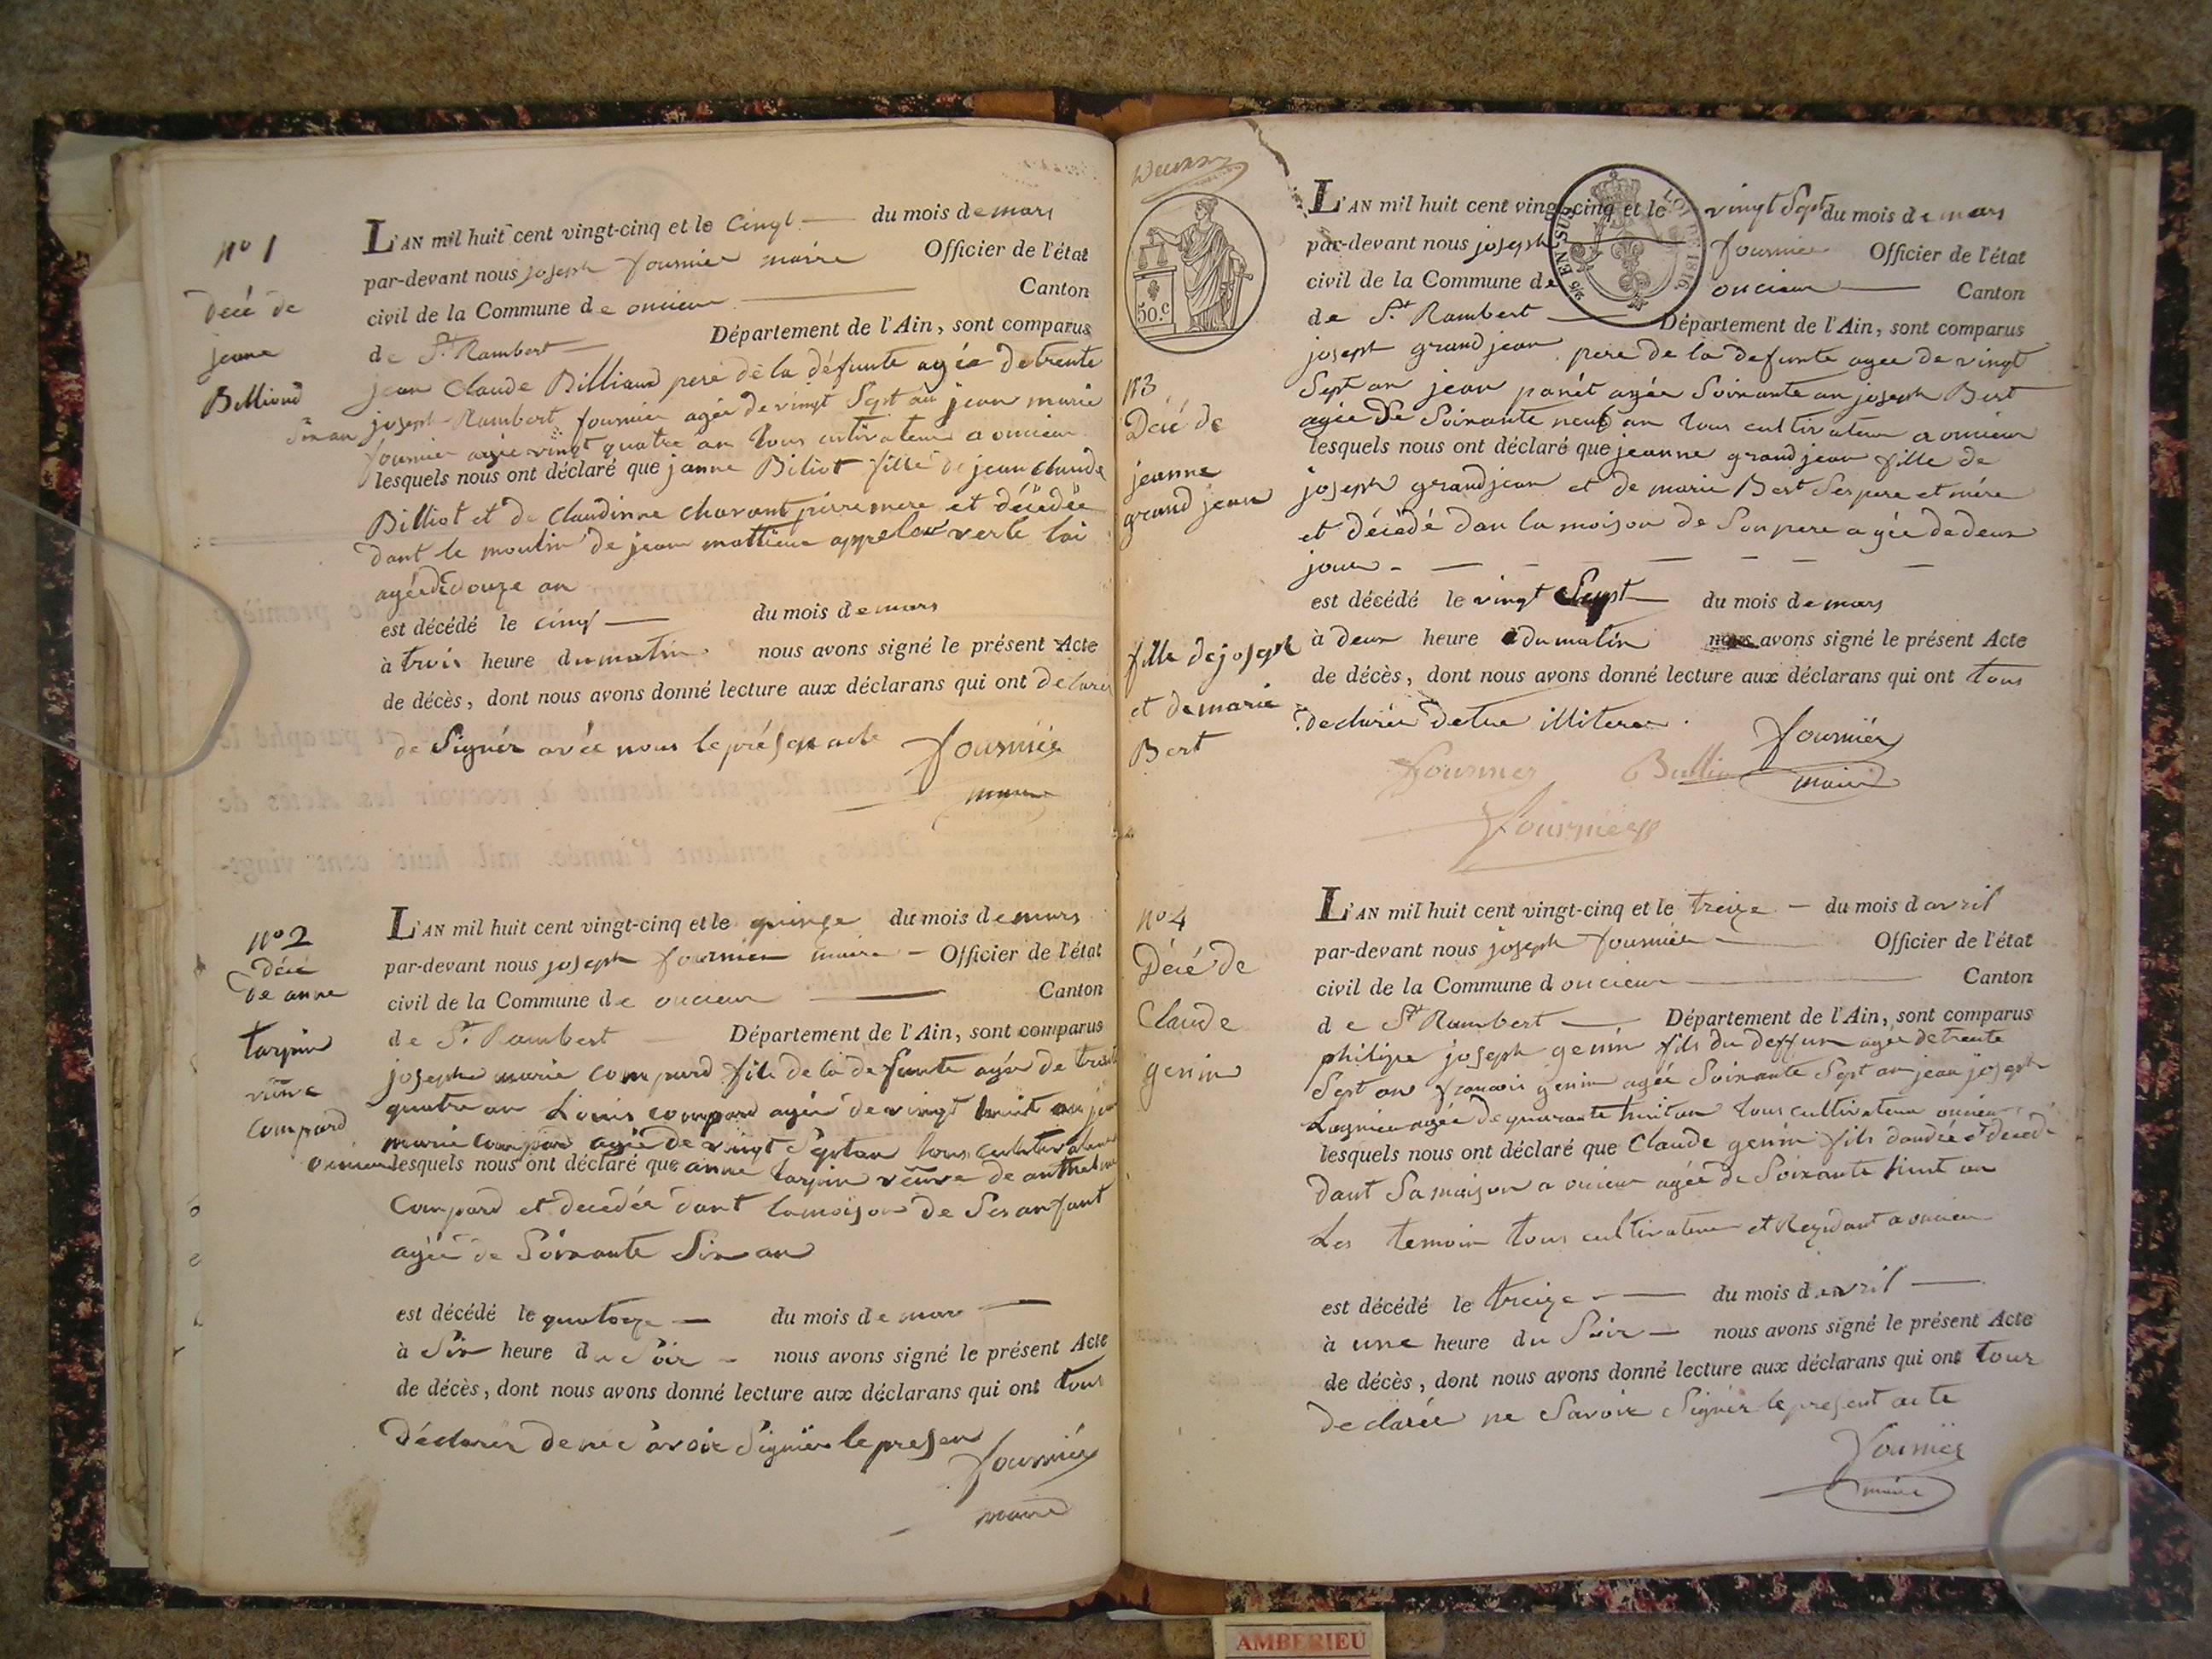 nº 1
décé de
jeanne
Billioud
L'AN mil huit cent vingt-cinq et le cinq du mois de mars
par-devant nous joseph fournier maire Officier de l'état
civil de la Commune de oncieu Canton
de St Rambert Département de l'Ain, sont comparus
jean Claude Billiaud pere de la défunte agée de trente
six an joseph Rambert fournier agée de vingt Sept an jean marie
fournier agée vingt quatre an tous cultivateur a oncieu
lesquels nous ont déclaré que janne Biliot fille de jean claude
Billiot et de Claudinne Charant père mere et décédée
dant le moulin de jean mattieu appeler verle loi
agée de douze an
est décédé le cinq du mois de mars
à trois heure du matin nous avons signé le présent Acte
de décès, dont nous avons donné lecture aux déclarans qui ont
de Signér avéc nous le présen acte fournier
maire
nº 2
décé
de anne
tarpin
veuve
compard
L'AN mil huit cent vingt-cinq et le quinze du mois de mars
par-devant nous joseph fournier maire Officier de l'état
civil de la Commune de oncieu Canton
de St Rambert Département de l'Ain, sont comparus
joseph marie compard fils de la defunte agée de trente
quatre an Louis compard agée de vingt huit an jean
marie compard agée de vingt Sept an tous cultivateur
oncieu lesquels nous ont déclaré que anne tarpin veuve de anthelme
Compard et decedée dant la moison de Ses anfant
agée de Soixante Six an
est décédé le quatorze du mois de mars
à Six heure du Soir nous avons signé le présent Acte
de décès, dont nous avons donné lecture aux déclarans qui ont tous
déclarér de ne Savoir Signier le presen
fournier
maire
50.C
EN SUS
LOI DE 1816
nº 3
Décé de
jeanne
grand jean
fille de joseph
et de marie
Bert
L'AN mil huit cent vingt-cinq et le vingt Sept du mois de mars
par-devant nous joseph fournier Officier de l'état
civil de la Commune de oncieu Canton
de St Rambert Département de l'Ain, sont comparus
joseph grand jean pere de la defunte agee de vingt
Sept an jean panét agée Soixante an joseph Bert
agée de Soixante neuf an tous cultivateur a oncieu
lesquels nous ont déclaré que jeanne grand jean fille de
joseph grand jean et de marie Bert Ses pere et mére
et décédé dan la moison de Son pere agée de deux
jour
est décédé le vingt Sept du mois de mars
à deux heure du matin nous avons signé le présent Acte
de décès, dont nous avons donné lecture aux déclarans qui ont tous
declarée detre illiterer
fournier
maire
nº 4
Décé de
Claude
genin
L'AN mil huit cent vingt-cinq et le treize du mois d avril
par-devant nous joseph fournier Officier de l'état
civil de la Commune d oncieu Canton
de St Rambert Département de l'Ain, sont comparus
philipe joseph genin fils du deffun agée de trente
Sept an francois genin agée Soixante Sept an jean joseph
Lagnieu agée de quarante huit an tous cultivateur oncieu
lesquels nous ont déclaré que Claude genin fils dandée é decedé
dant Sa maison a oncieu agée de Soixante huit an
Les temoin tous cultivateur et Rezidant a oncieu
est décédé le treize du mois d avril
à une heure du Soir nous avons signé le présent Acte
de décès, dont nous avons donné lecture aux déclarans qui ont tous
declarée ne Savoir Signér le present acte
fournier
maire
AMBERIEU